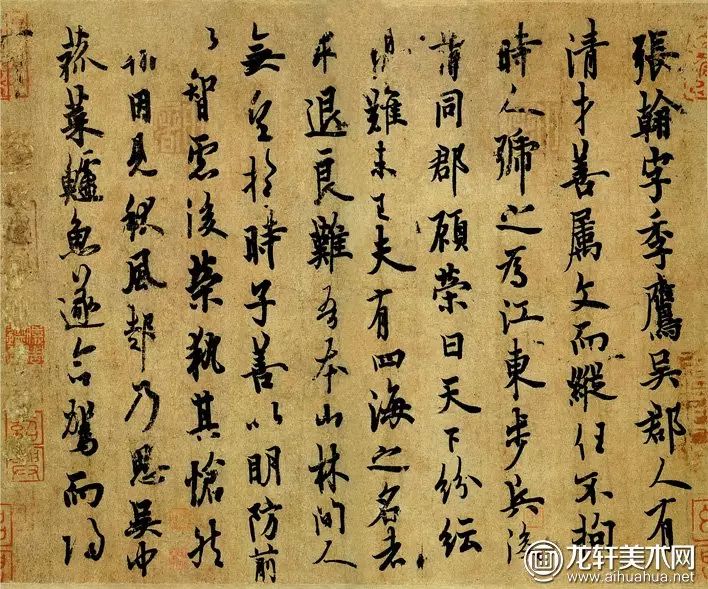 張翰字季鷹吳郡人有
清才善属文而縱任不拘
時人號之為江東步兵後
謂同郡顧榮曰天下紛紜
禍難未已夫有四海之名者
求退良難吾本山林間人
無望於時子善以明防前
以智慮後榮執其愴然
翰因見秋風起乃思吳中
菰菜鱸魚遂命駕而歸
画
龙轩美术网
www.aihuahua.net